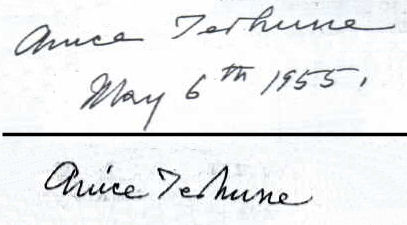 Anice Terhune
May 6th 1955.
Anice Terhune